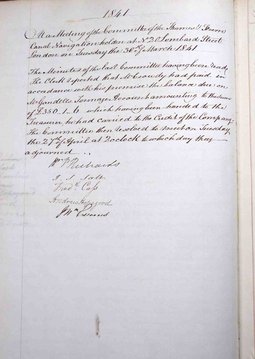 1841
At a Meeting of the Committee of the Thames & Severn
Canal Navigation holden at No 21 Lombard Street
London on Tuesday the 30th March 1841
The Minutes of the last Committee having been read,
The Clerk reported that had paid in
accordance with his promise the balance due on
Tonnage Account amounting to the sum
of £350. which having been handed to the
Treasurer he had carried to the Credit of the Company
The Committee then resolved to meet on Tuesday
the 27th April at 2 oClock to which day they
adjourned
Wm Richards
Salt
Fredk
Andrew
Wm